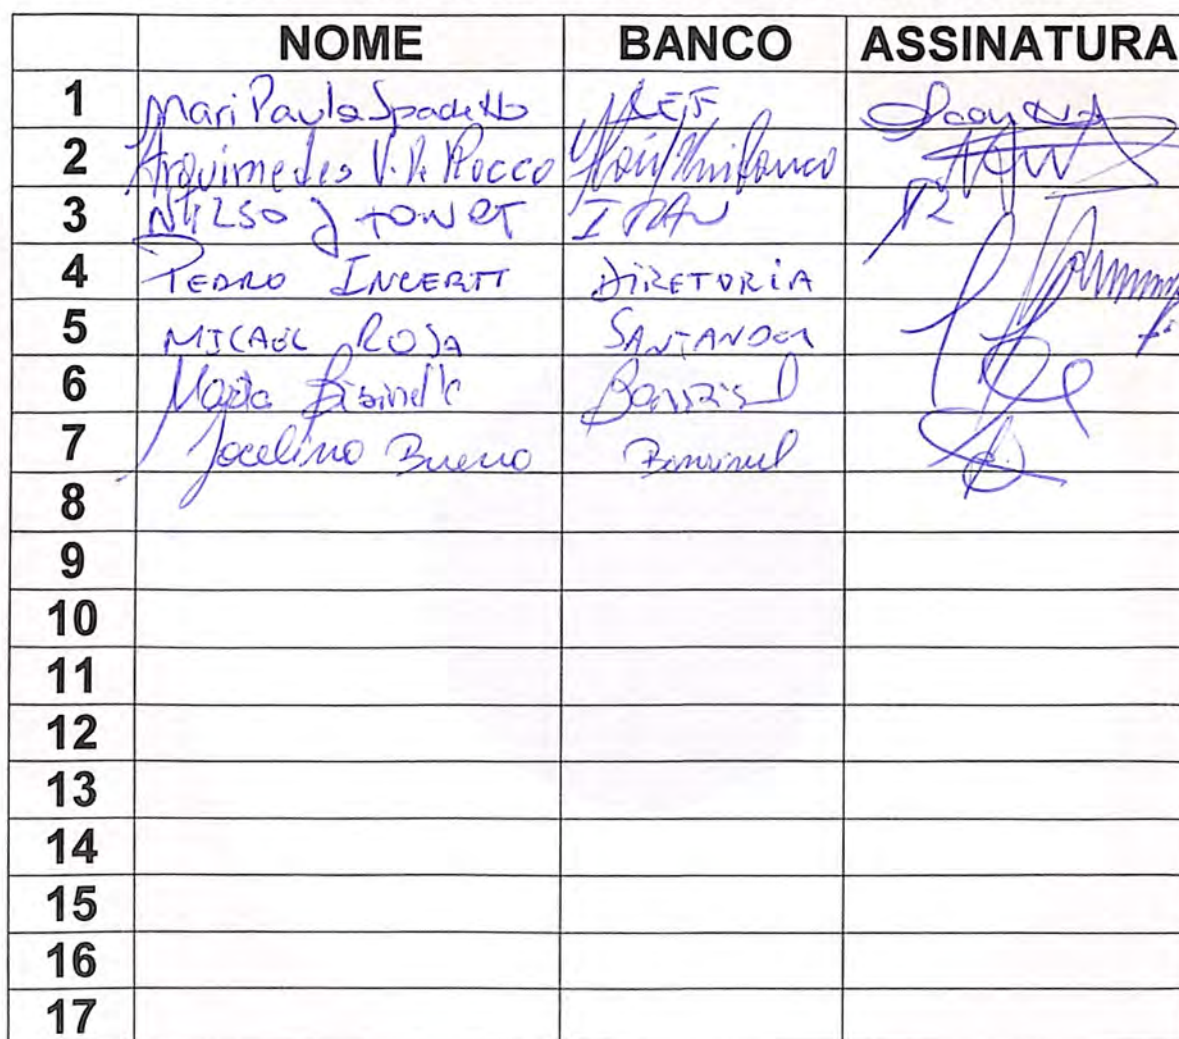 NOME BANCO ASSINATURA
1 Mari Paula Spadetto
2 Arquimedes V. R. Rocco Itaú/Unibanco
3 NILSO J TONET ITAU
4 PEDRO INCERTI DIRETORIA
5 MICAEL ROSA SANTANDER
6 Banrisul
7 Jocelino Bueno Banrisul
8
9
10
11
12
13
14
15
16
17